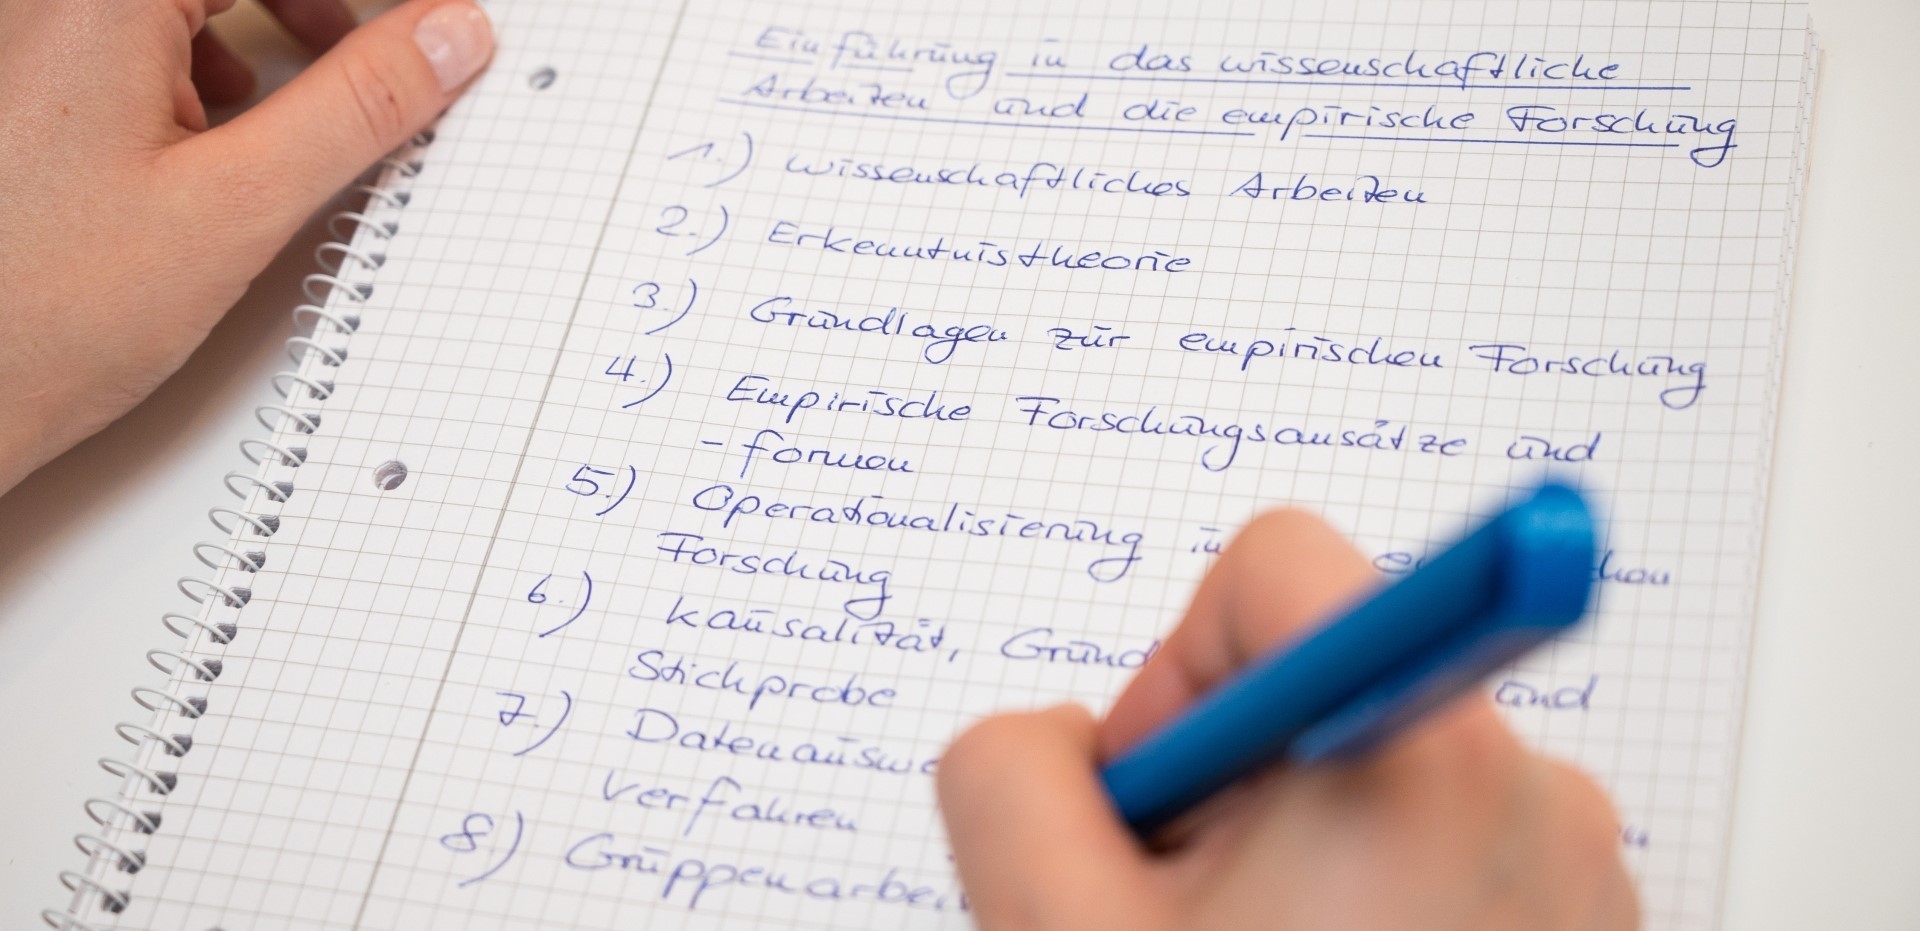 Einführung in das wissenschaftliche
Arbeiten und die empirische Forschung
1.) wissenschaftliches Arbeiten
2.) Erkenntnistheorie
3.) Grundlagen zur empirischen Forschung
4.) Empirische Forschungsansätze und
-formen
5.) Operationalisierung in
Forschung
6.) Kausalität, und
Stichprobe
7.)
verfahren
8.)